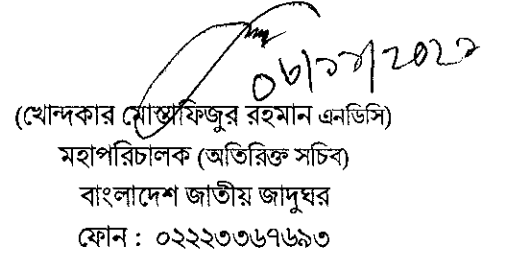 (খোন্দকার মোস্তাফিজুর রহমান এনডিসি)
মহাপরিচালক (অতিরিক্ত সচিব)
বাংলাদেশ জাতীয় জাদুঘর
ফোন : ০২২২৩৩৬৭৬৯৩